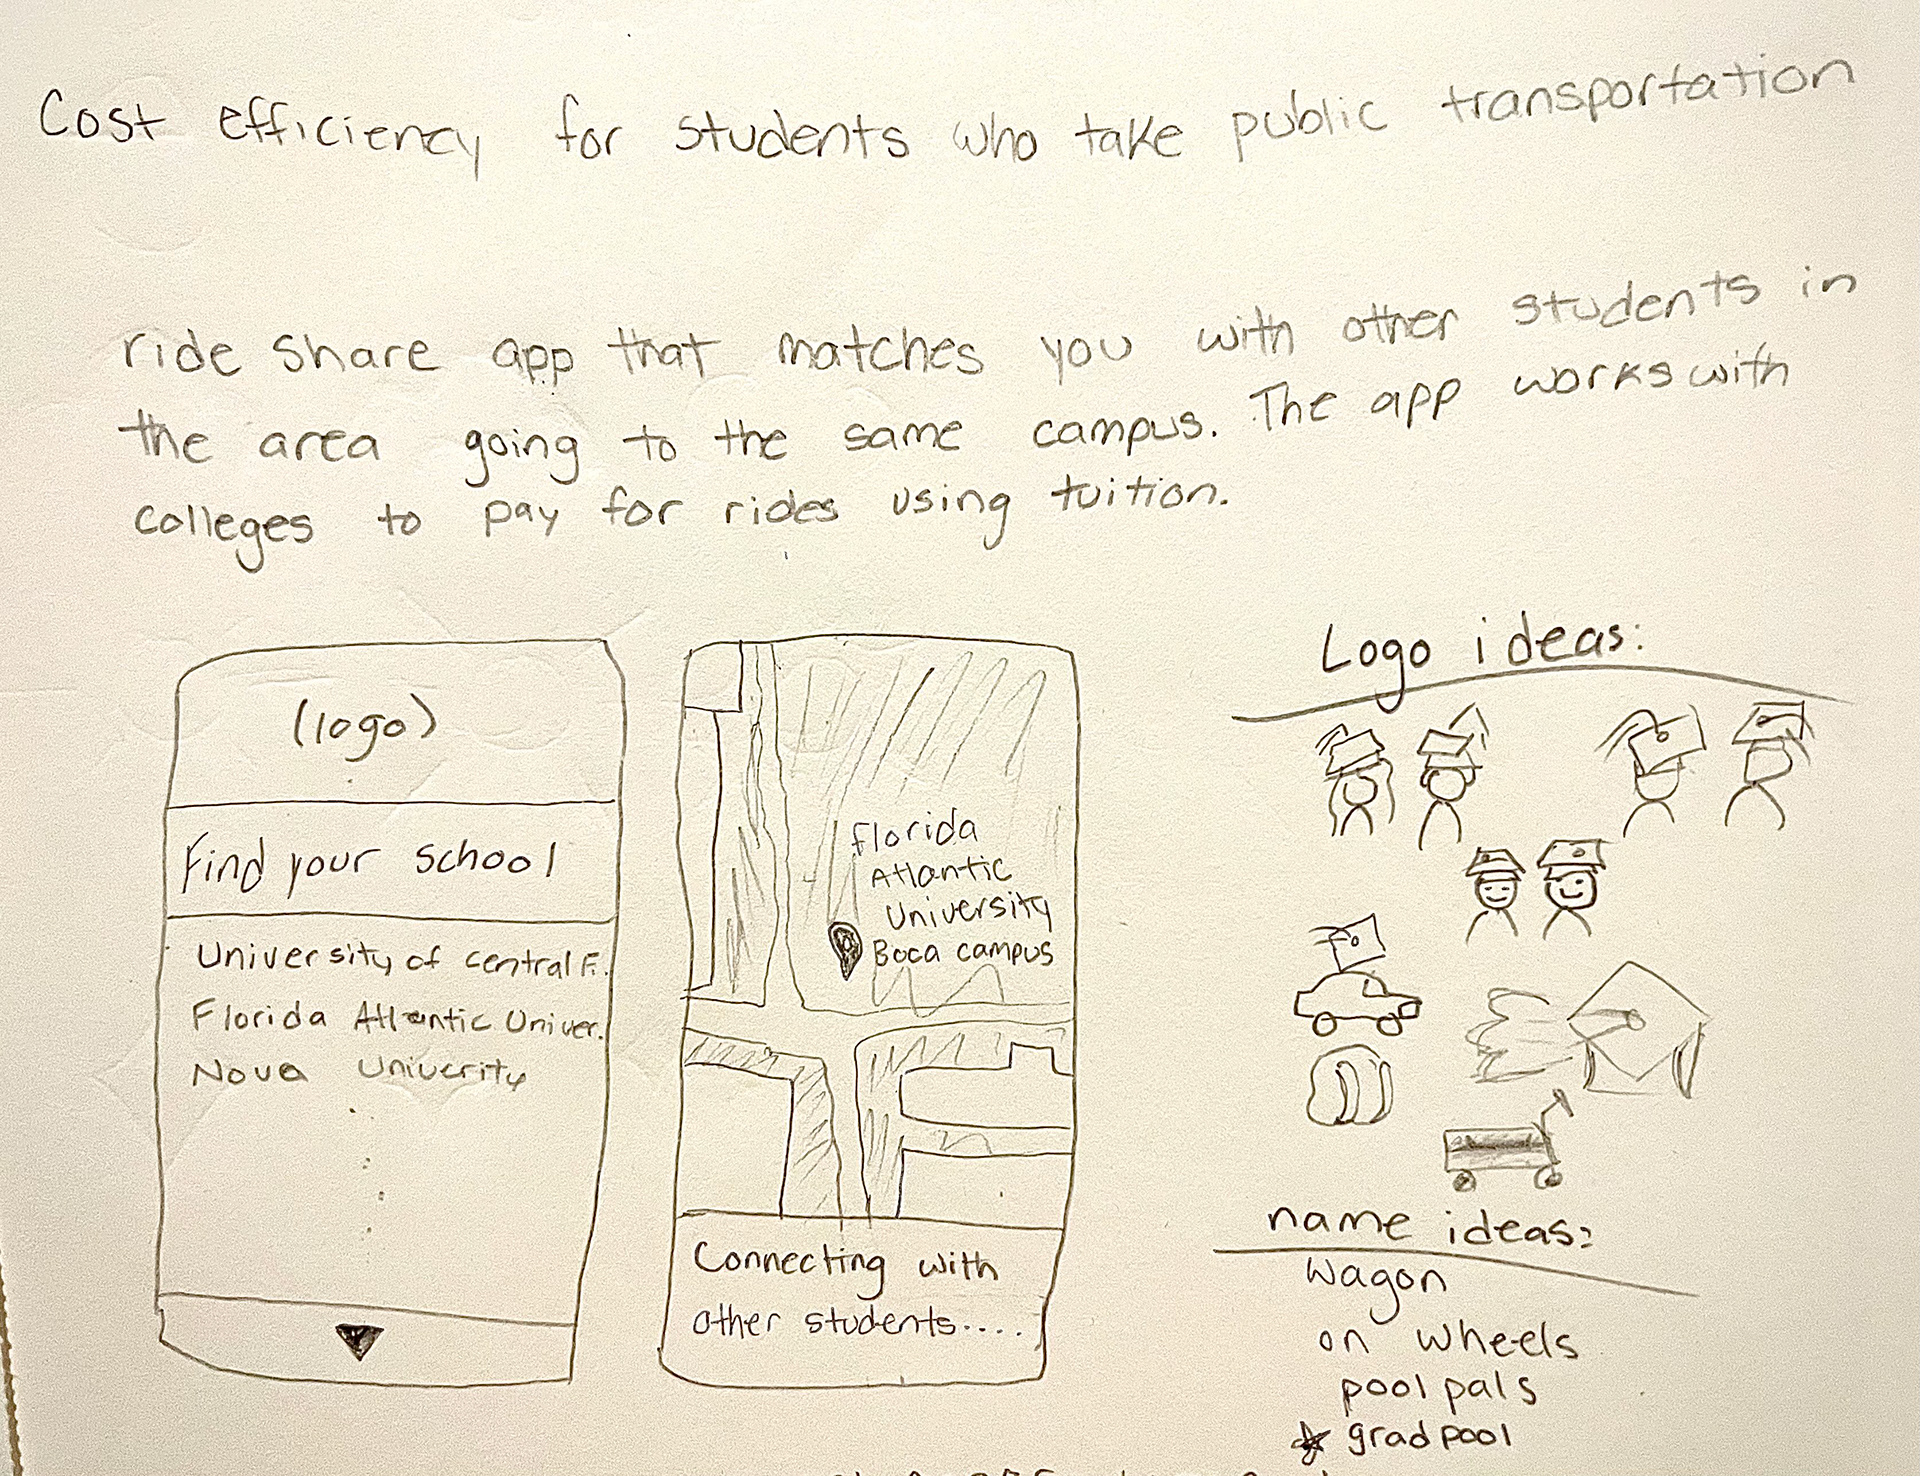 Cost efficiency for students who take public transportation
ride share app that matches you with other students in
the area going to the same campus. The app works with
colleges to pay for rides using tuition.
(logo)
Find your school
University of central F.
Florida Atlantic Univer.
Nova Univerity
Florida
Atlantic
University
Boca campus
Connecting with
other students....
Logo ideas:
name ideas:
wagon
on wheels
pool pals
grad pool